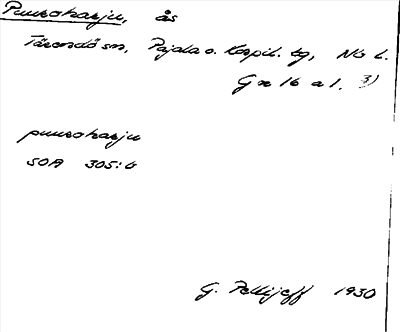 Puurokarju, ås
Tärendö sn, Pajala o. Korpil. tg, Nb l.
Gx 16 a 1. 3)
puurokarju
SOA 305:6
G. Pellijeff 1930